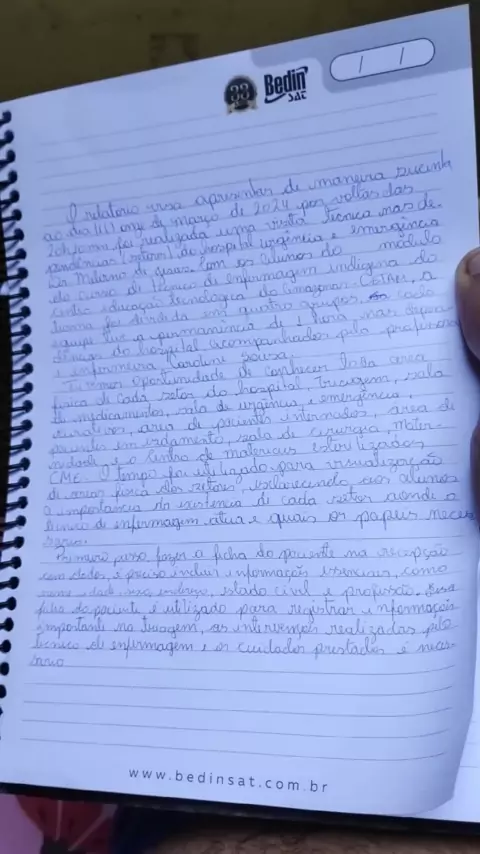 33
Bedin
SAT
/ /
O relatório visa apresentar de maneira sucinta
ao dia (11) onze de março de 2024 por voltas das
foi realizada uma visita técnica nas de
pendências (setores) do hospital urgência e emergência
Com os alunos do módulo
do curso de técnico de enfermagem indígena do
centro educação tecnológica do Amazonas CETAM, a
turma foi dividida em quatro grupos, cada
equipe teve a permanência de 1 hora, nas depen
dências do hospital acompanhados pela professora
e enfermeira Caroline Sousa,
Tivemos oportunidade de conhecer toda area
física de cada setor do hospital, Triagem, sala
de medicamentos, sala de urgência, e emergência,
curativos, area de pacientes internados, área de
pacientes em isolamento, sala de cirurgia, Mater
nidade e o Centro de materiais esterilizados
CME. O tempo foi utilizado para visualização
de areas física dos setores, esclarecendo aos alunos
a importância da existência de cada setor aonde o
técnico de enfermagem atua e quais os papeis neces
sário.
Primeiro passo fazer a ficha do paciente na recepção
com dados, é preciso incluir informações essenciais, como
nome idade endereço, estado civil e profissão. Essa
ficha do paciente é utilizado para registrar informações
importante na triagem, as intervenções realizadas pelo
técnico de enfermagem e os cuidados prestados é neces
sário
www.bedinsat.com.br